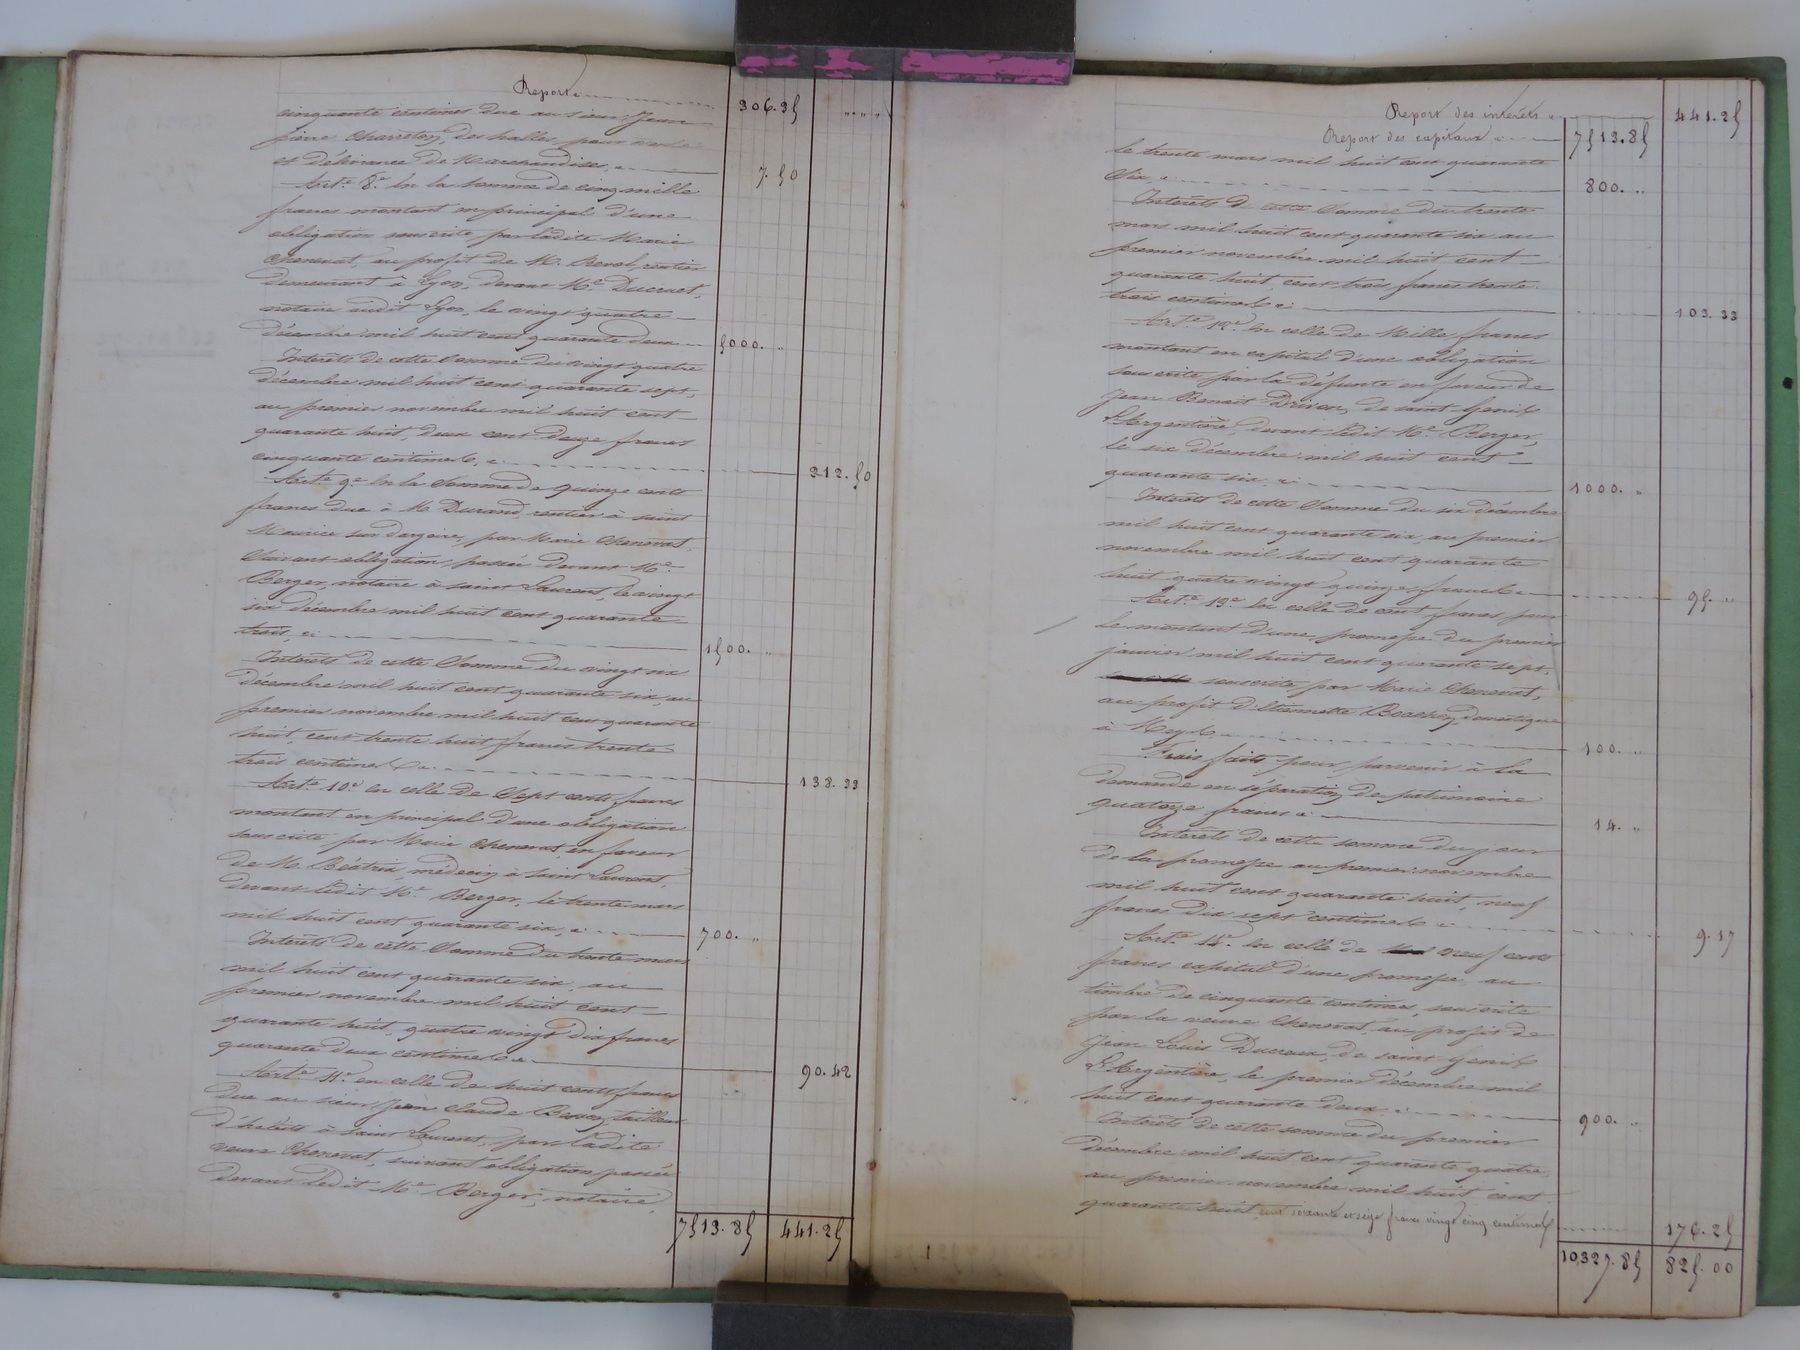 Report 306.35 " "
cinquante centimes due au sieur Jean
pierre Charreton, des halles, pour vente
et délivrance de Marchandises, 7.50
Art.e 8.e En la somme de cinq mille
francs montant en principal d'une
obligation souscrite par ladite Marie
Chenevat, au profit de M. Revol, rentier
demeurant à Lyon, devant M.e Ducruet,
notaire audit Lyon, le vingt quatre
décembre mil huit cent quarante deux 5000. "
Intérêts de cette somme du vingt quatre
décembre mil huit cent quarante sept,
au premier novembre mil huit cent
quarante huit, deux cent douze francs
cinquante centimes, 212.50
Art.e 9.e En la Somme de quinze cents
francs due à M. Durand, rentier à saint
Maurice sur dargoire, par Marie Chenevat,
Suivant obligation passée devant M.e
Berger, notaire à saint Laurent, le vingt
six décembre mil huit cent quarante
trois, 1500. "
Intérêts de cette Somme du vingt six
décembre mil huit cent quarante six, au
premier novembre mil huit cent quarante
huit, cent trente huit francs trente
trois centimes 138.33
Art.e 10.e En celle de Sept cents francs
montant en principal d'une obligation
souscrite par Marie Chenevat en faveur
de M. Béatrix, médecin à saint Laurent,
devant ledit M.e Berger, le trente mars
mil huit cent quarante six, 700. "
Intérêts de cette Somme du trente mars
mil huit cent quarante six, au
premier novembre mil huit cent
quarante huit, quatre vingt dix francs
quarante deux centimes 90.42
Art.e 11.e en celle de huit cents francs
due au sieur Jean Claude Besson, tailleur
d'habits à saint Laurent, par ladite
veuve Chenevat, suivant obligation passée
devant ledit M.e Berger, notaire,
7513.85 441.25
Report des intérêts 441.25
Report des capitaux 7513.85
le trente mars mil huit cent quarante
six, 800. "
Intérêts de cette Somme du trente
mars mil huit cent quarante six au
premier novembre mil huit cent
quarante huit cent trois francs trente
trois centimes 103.33
Art.e 12.e En celle de Mille francs
montant en capital d'une obligation
souscrite par la défunte en faveur de
Jean Benoit Drivon, de saint Genis
L'Argentière, devant ledit M.e Berger,
le six décembre mil huit cent
quarante six, 1000. "
Intérêts de cette Somme du six décembre
mil huit cent quarante six, au premier
novembre mil huit cent quarante
huit quatre vingt quinze francs 95. "
Art.e 13.e En celle de cent francs pour
le montant d'une promesse du premier
janvier mil huit cent quarante sept,
souscrite par Marie Chenevat,
au profit d'Etiennette domestique
à Meys 100. "
Frais faits pour parvenir à la
demande en séparation de patrimoine
quatorze francs 14. "
Intérêts de cette somme du jour
de la promesse au premier novembre
mil huit cent quarante huit, neuf
francs dix sept centimes 9.17
Art.e 14.e En celle de neuf cents
francs capital d'une promesse, au
timbre de cinquante centimes, souscrite
par la veuve Chenevat, au profit de
Jean Louis Ducreux, de saint Genis
L'Argentière, le premier décembre mil
huit cent quarante deux 900. "
Intérêts de cette somme du premier
décembre mil huit cent quarante quatre,
au premier novembre mil huit cent
quarante huit, cent soixante et seize francs vingt cinq centimes 176.25
10,327.85 825.00